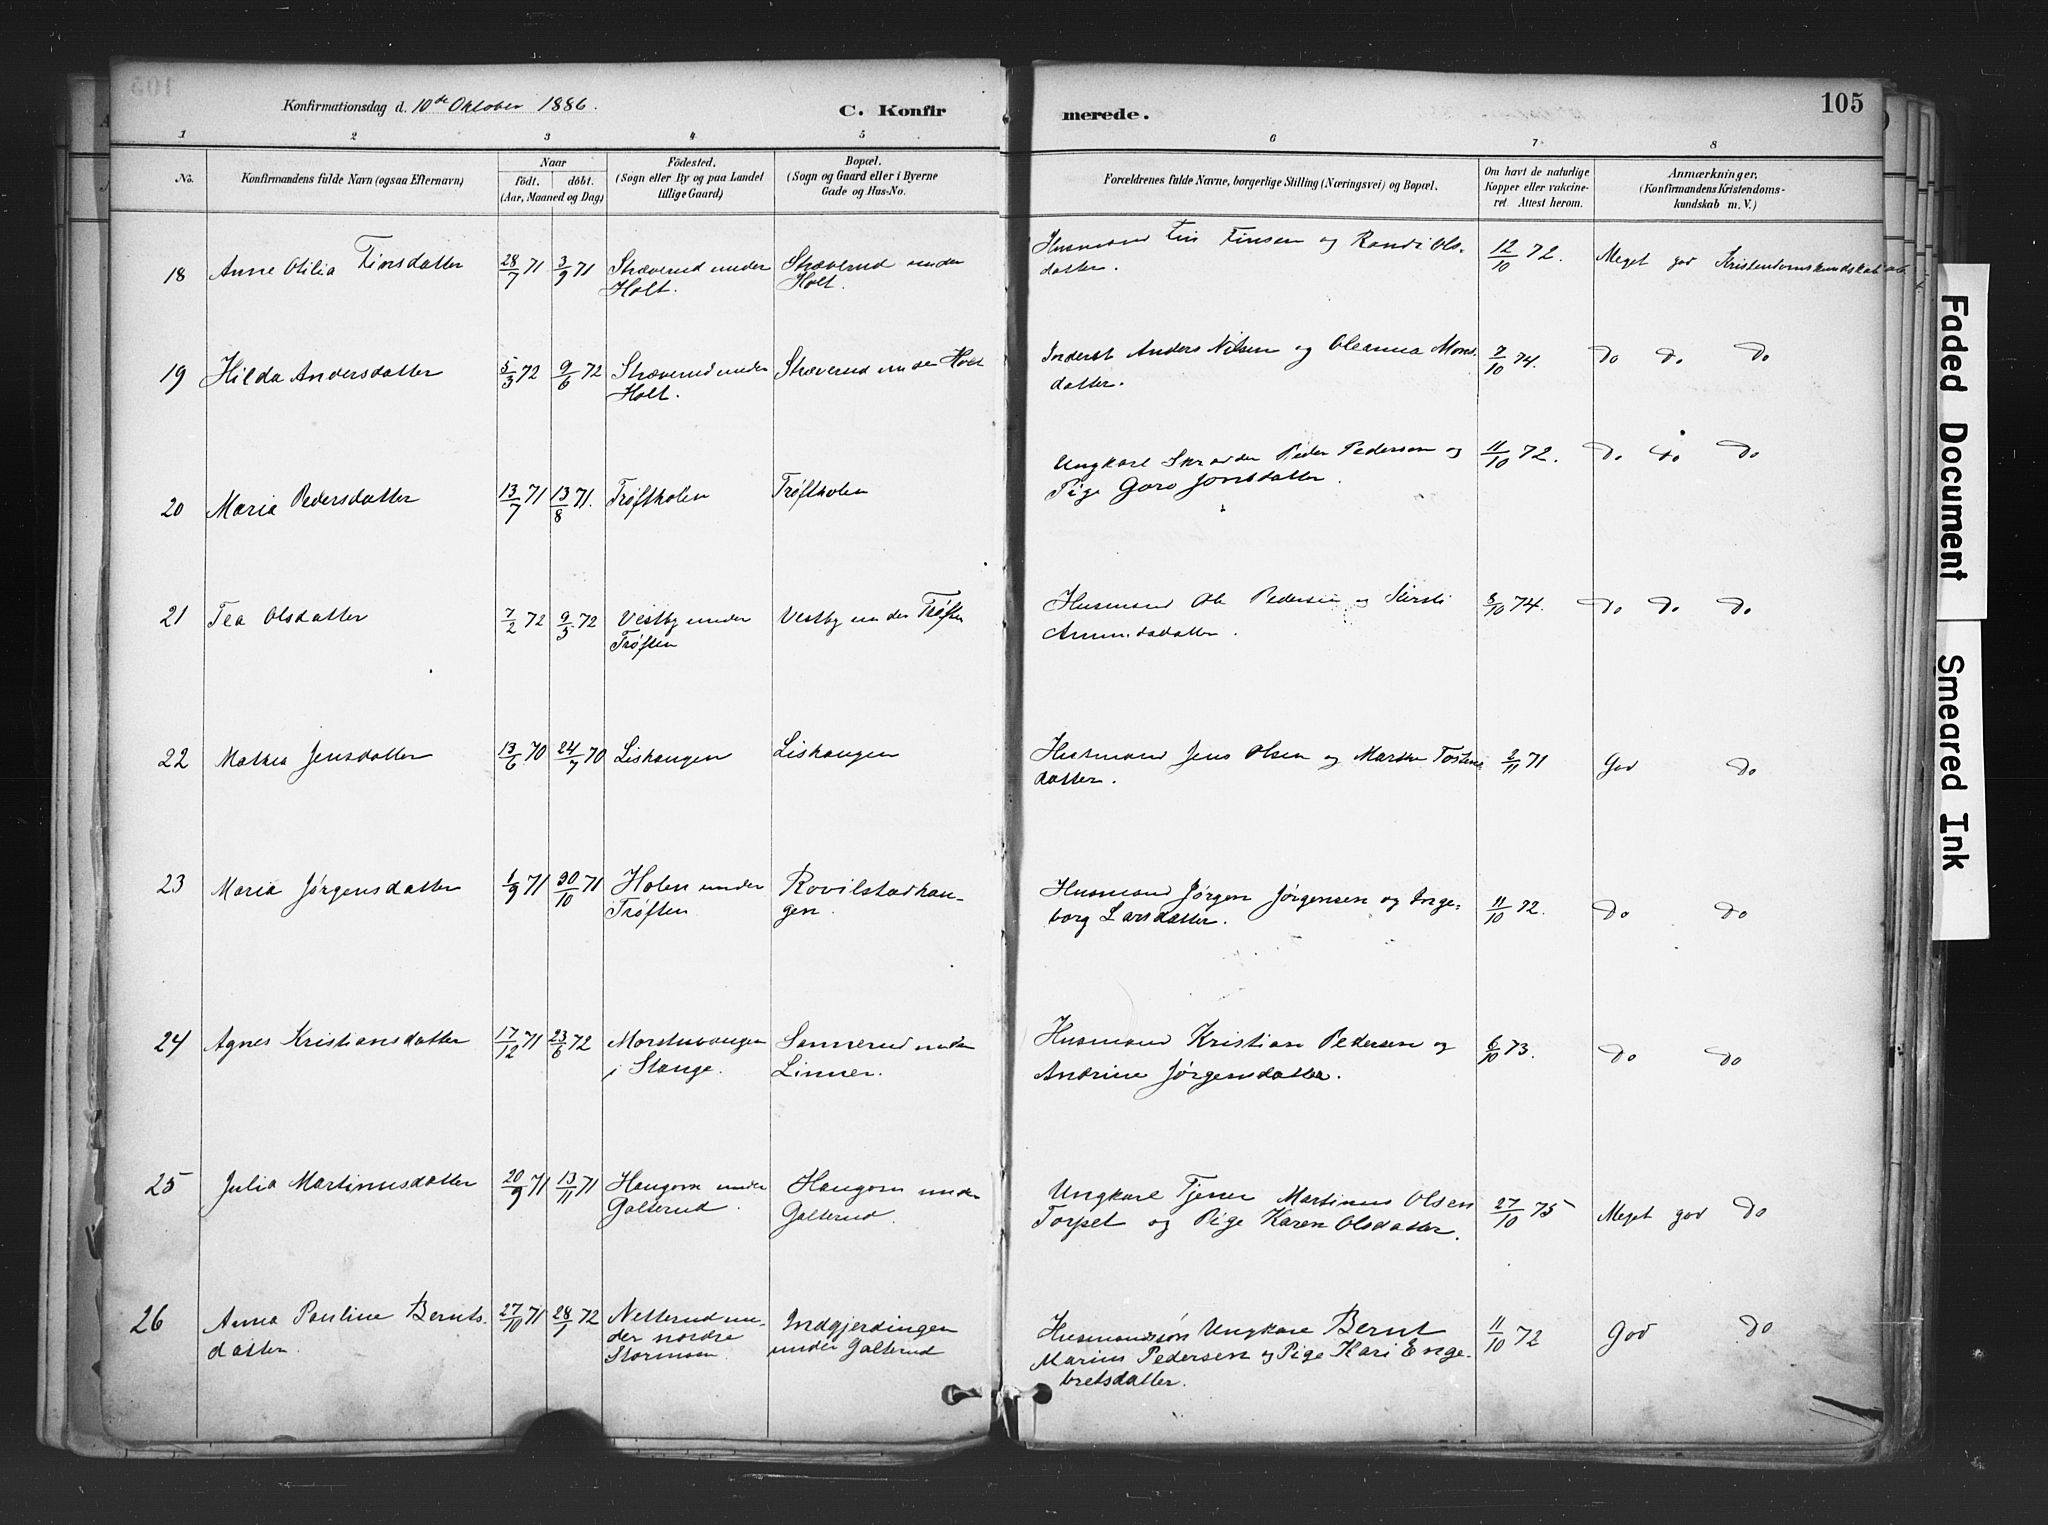 105
Konfirmationsdag d. 10de Oktober 1886.
C. Konfirmerede.
1 2 3 4 5 6 7 8
No.
Konfirmandens fulde Navn (ogsaa Efternavn)
Naar
födt. döbt.
(Aar, Maaned og Dag)
Födested.
(Sogn eller By og paa Landet
tillige Gaard)
Bopæl.
(Sogn og Gaard eller i Byerne
Gade og Hus-No.
Forældrenes fulde Navne, borgerlige Stilling (Næringsvei) og Bopæl.
Om havt de naturlige
Kopper eller vakcine-
ret. Attest herom.
Anmærkninger.
(Konfirmandens Kristendoms-
kundskab m. V.)
18 Anne Otilia Finsdatter 28/7 71 3/9 71 Stræverud under
Holt.
Stræverud under
Holt.
Husmand Fin Finsen og Randi Ols-
datter.
12/10 72. Meget god Kristendomskundskab
19 Hilda Andersdatter 5/3 72 9/6 72 Stræverud under
Holt.
Stræverud under Holt
Inderst Anders Nilsen og Oleanna Mons
datter.
7/10 74. Do Do Do
20 Maria Pedersdatter 13/7 71 13/8 71. Trøftholen Trøftholen
Ungkarl Skrædder Peder Pedersen og
Pige Goro Jonsdatter.
11/10 72. Do Do Do
21 Tea Olsdatter 7/2 72 9/5 72 Vestby under
Trøften
Vestby under Trøften
Husmand Ole Pedersen og Kirsti
Amundsdatter.
3/10 74. Do Do Do
22 Mathea Jensdatter 13/6 70 24/7 70 Liskaugen Liskaugen
Husmand Jens Olsen og Marthe Tostens
datter.
2/11 71 God Do
23 Maria Jørgensdatter 1/9 71 30/10 71 Holen under
Trøften
Rovilstadhau-
gen.
Husmand Jørgen Jørgensen og Inge-
borg Larsdatter.
11/10 72. Do Do
24 Agnes Kristiansdatter 17/12 71 23/6 72 Morstuvangen
i Stange.
Sannerud under
Linner.
Husmand Kristian Pedersen og
Andrine Jørgensdatter.
6/10 73. Do Do
25 Julia Martinusdatter 20/9 71 13/11 71 Haugom under
Galterud.
Haugom under
Galterud.
Ungkarl Tjener Martinus Olsen
Torpet og Pige Karen Olsdatter.
27/10 75 Meget god Do
26 Anna Pauline Bernts-
datter.
27/10 71 28/1 72 Netterud un-
der nordre
Stormoen
Indgjerdingen
under Galterud
Husmandssøn Ungkarl Bernt
Marius Pedersen og Pige Kari Enge-
bretsdatter.
11/10 72 God Do
Faded Document
Smeared Ink